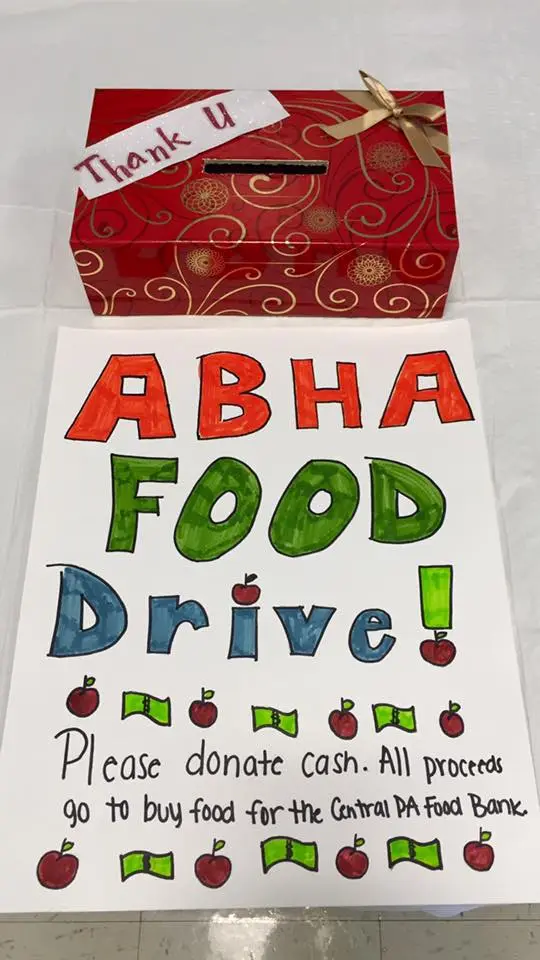 Thank U
ABHA
FOOD
Drive!
Please donate cash. All proceeds
go to buy food for the Central PA Food Bank.